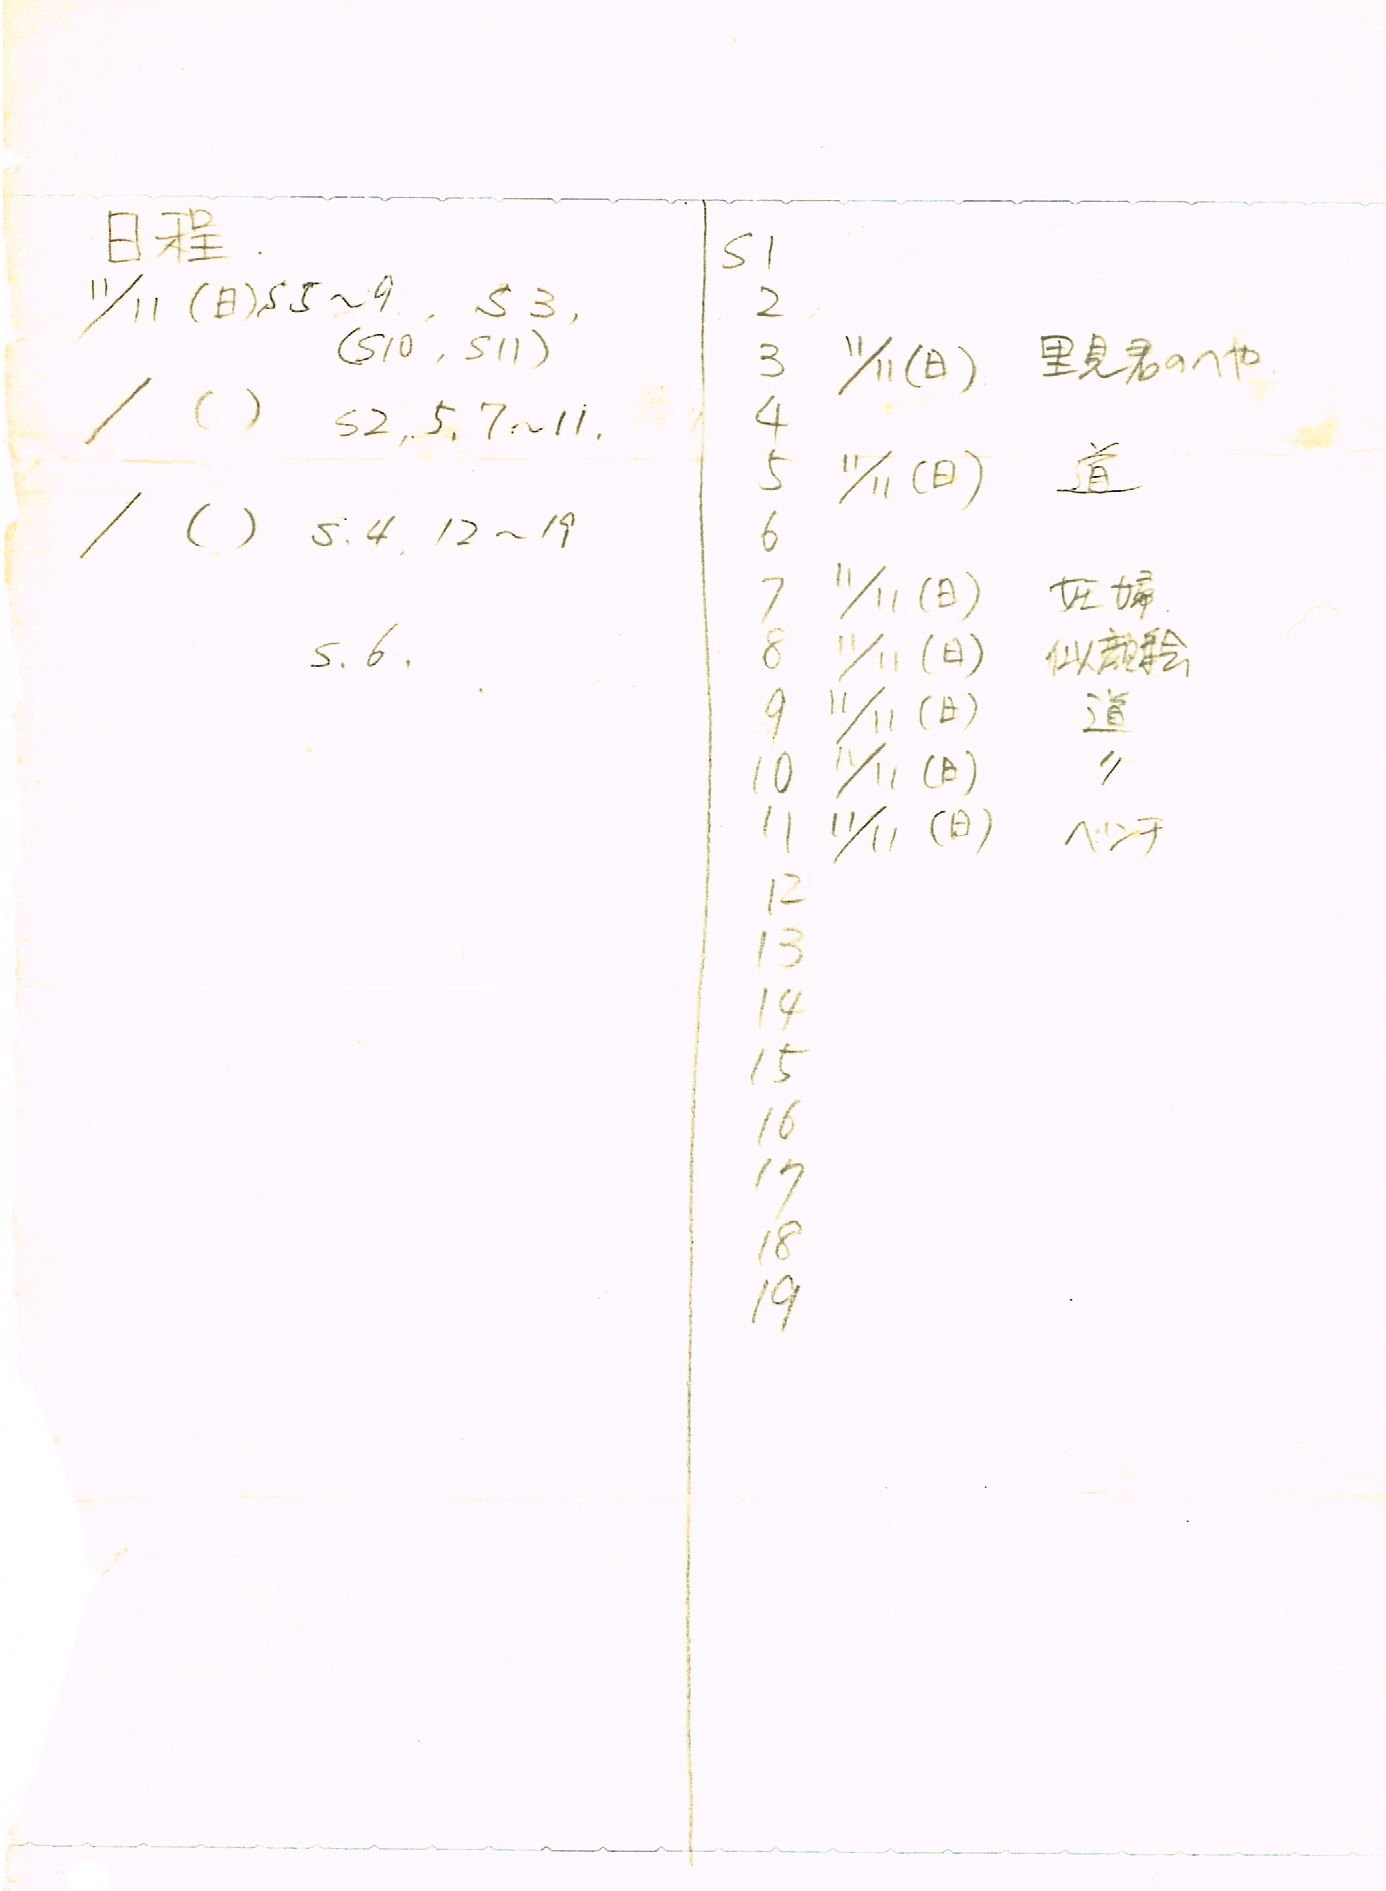 日程.
11/11 (日) S5～9, S3,
(S10, S11)
/ ( ) S2, 5, 7～11.
/ ( ) S.4, 12～19
S.6.
S1
2
3 11/11 (日) 里見君のへや
4
5 11/11 (日) 道
6
7 11/11 (日) 妊婦
8 11/11 (日) 似顔絵
9 11/11 (日) 道
10 11/11 (日) 〃
11 11/11 (日) ベンチ
12
13
14
15
16
17
18
19